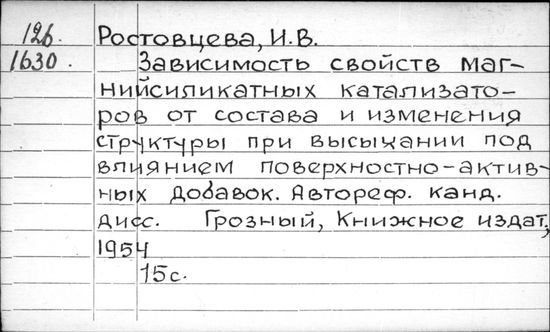 126. Ростовцева, И.В.
1630. Зависимость свойств маг-
нийсиликатных катализато-
ров от состава и изменения
структуры при высыхании под
влиянием поверхностно-актив-
ных добавок. Автореф. канд.
дисс. Грозный, Книжное издат.,
1954
15с.